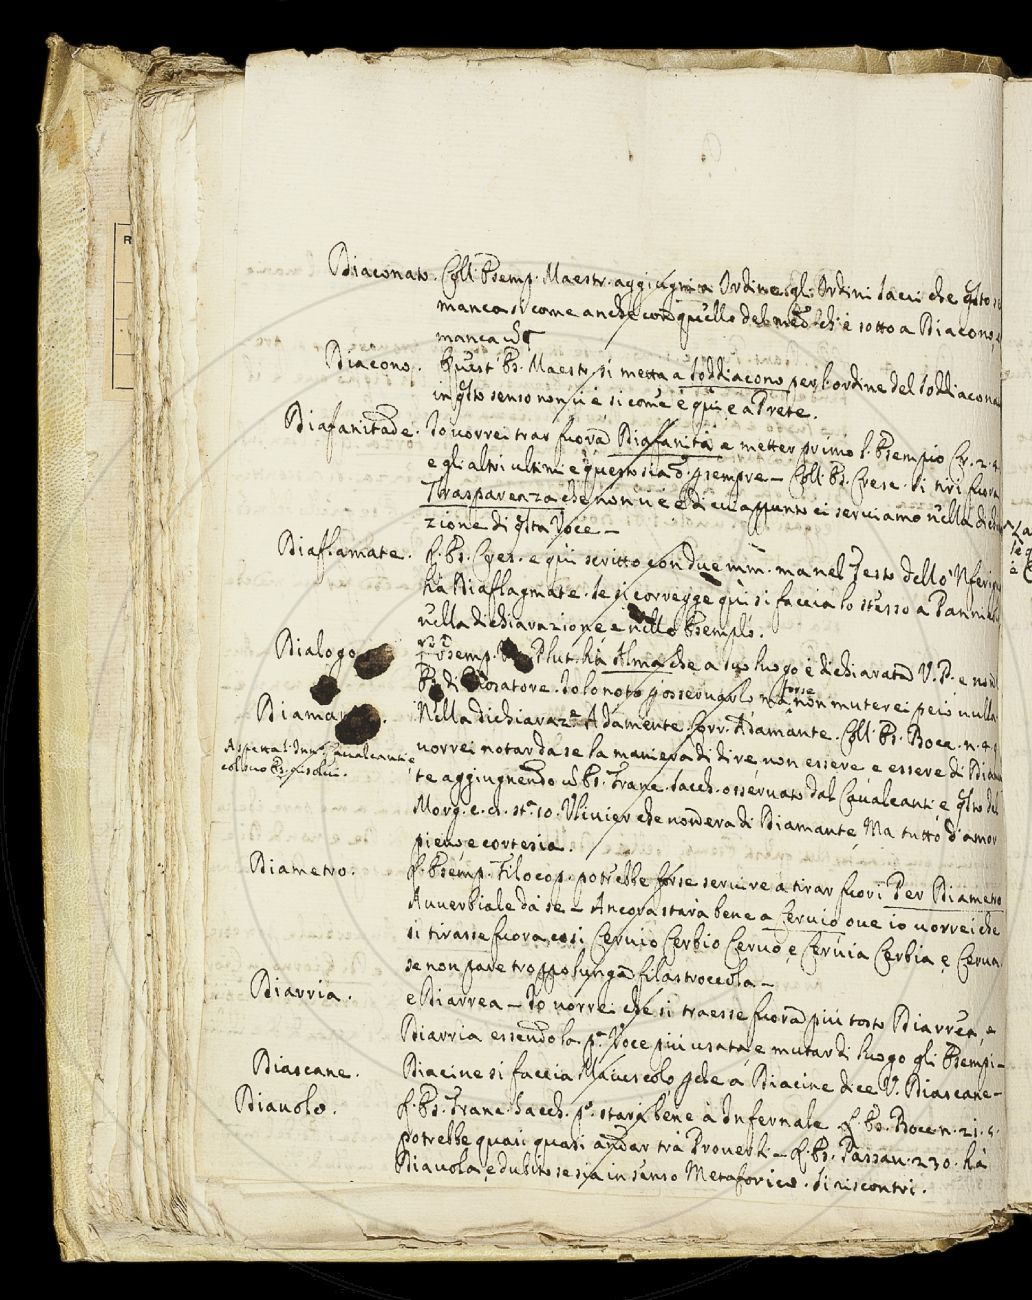 Diaconato. Coll Esemp. Maestr. aggiugni a Ordine, gli Ordini Sacri che
manca sì come anche con quello del med.º chi è sotto a Diacono,
manca
Diacono. Quest' Es. Maestr. si metta a Soddiacono per l'ordine del Soddiacona
in qsto senso non vi è sicome è qui e a Prete.
Diafanitade. Io vorrei trar fuora Diafanità e metter primo l'Esempio Cr. 2. 4.
e gli altri ultimi e questo sempre — Coll Es. Cresc. si tiri fuora
Trasparenza che non vi è e di cui appunto ci serviamo nella dichia
zione di qsta Voce —
Diaflamate. L'Es. Cres. e qui scritto con due mm. ma nel Testo dello 'Nferi
hà Diaflagmate. Se si corregge quì si faccia lo stesso a
nella dichiarazione e nello Esemplo.
Dialogo Esemp. Plut. hà Alma che a suo luogo è dichiarata V. P. e non
Es. di Io lo noto p osservarlo ma forse non muterei però nulla.
Diaman . Nella dichiaraz.e Adamente. Corr. Adamante. Coll Es. Bocc. n. 4
Aspetta l' Inf. Cavalcanti e
vorrei notar da se la maniera di dire, non essere e essere di Diaman
collo suo Es. risolvi.
te aggiugnendo Es. Franc. Sacch. osservato dal Cavalcanti, e qsto del
Morg. c. st.ª 10. Ulivier che non era di Diamante, Ma tutto d'amor
pieno e cortesia.
Diametro. L'Esemp. Filocop. potrebbe forse servire a tirar fuori Per Diametro
Avverbiale da se — Ancora starà bene a Cervio ove io vorrei che
si tirasse fuora così Cervio Cerbio Cervo, e Cervia Cerbia, e Cerva
se non pare troppo lunga filastroccola —
Diarria. e Diarrea — Io vorrei che si traesse fuora più tosto Diarrea, e
Diarria essendo la p.ª Voce più usata, e mutar di luogo gli Esempi —
Diascane. Diacine si faccia Maiuscolo pche a Diacine dice V. Diascane —
Diavolo. L'Es. Franc. Sacch. p.º starà bene à Infernale. L'Es. Bocc. n. 21. 5.
potrebbe quasi quasi andar trà Proverb. — L'Es. Passav. 230. hà
Diavola, e dubito se sia in senso Metaforico. Si riscontri.